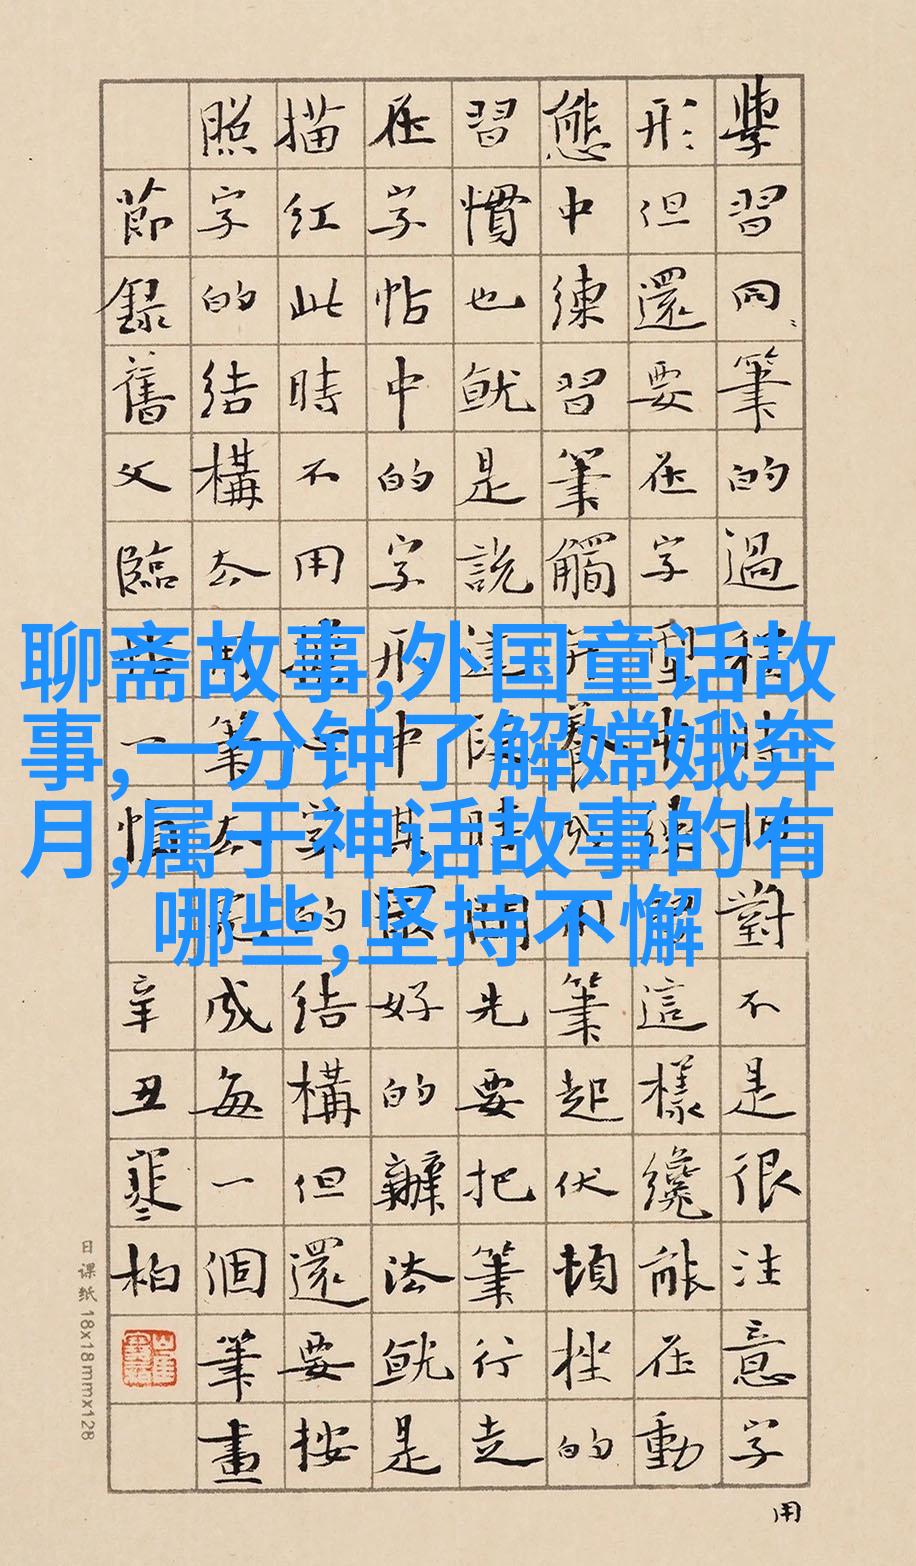 聊斋故事,外国童话故
事,一分钟了解嫦娥奔
月,属于神话故事的有
哪些,坚持不懈
學習同筆的過程時對不是很注意字
形但還要在字型中練這樣纔能在動
態中練習筆觸養成用筆起伏頓挫的
習慣也就是說這段時間先要把筆行走
在字帖中的字形中其最好的辦法就是
描紅此時不用心字的結構但還要按
照字的結構去用筆去成每一個筆畫
節錄舊文臨一辛丑寒柏
用
日课纸 18x18mmx128